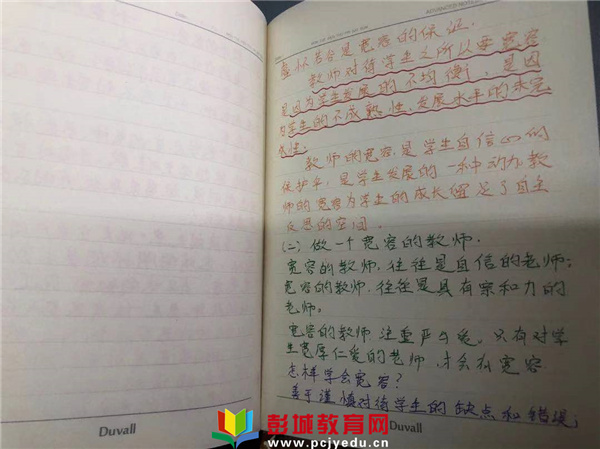 虚怀若谷是宽容的保证.
教师对待学生之所以要宽容
是因为学生发展的不均衡,是因
为学生的不成熟性,发展水平的未完
成性.
教师的宽容.是学生自信心的
保护伞.是学生发展的一种动力,教
师的宽容为学生的成长留足了自主
反思的空间.
(二)做一个宽容的教师.
宽容的教师,往往是自信的老师;
宽容的教师.往往是具有亲和力的
老师。
宽容的教师 注重严与爱.只有对学
生宽厚仁爱的老师,才会有宽容.
怎样学会宽容?
善于谨慎对待学生的缺点和错误;
Duvall
Duvall
彭城教育网
www.pcjyedu.cn